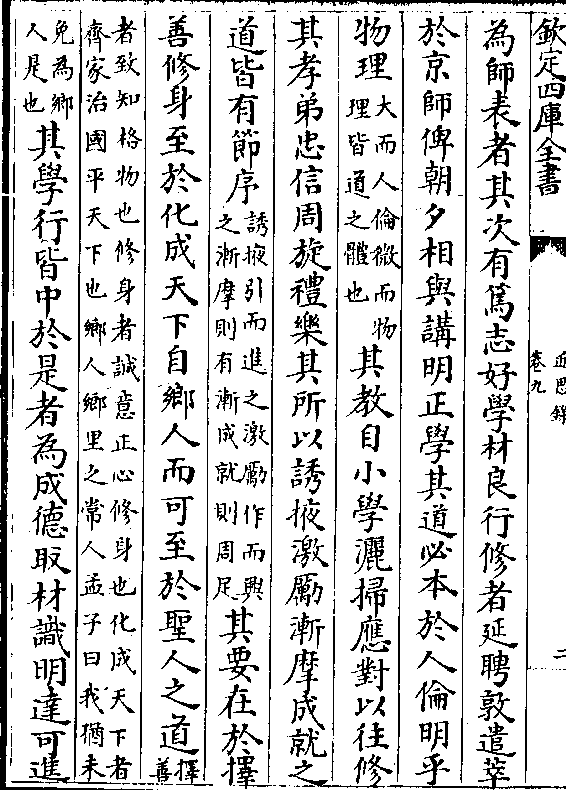 欽定四庫全書
近思錄
卷九
二
為師表者其次有篤志好學材良行修者延聘敦遣萃
於京師俾朝夕相與講明正學其道必本於人倫明乎
物理
大而人倫微而物
理皆道之體也
其教自小學灑掃應對以往修
其孝弟忠信周旋禮樂其所以誘掖激厲漸摩成就之
道皆有節序
誘掖引而進之激厲作而興
之漸摩則有漸成就則周足
其要在於擇
善修身至於化成天下自鄉人而可至於聖人之道
擇
善
者致知格物也修身者誠意正心修身也化成天下者
齊家治國平天下也鄉人鄉里之常人孟子曰我猶未
免為鄉
人是也
其學行皆中於是者為成德取材識明達可進